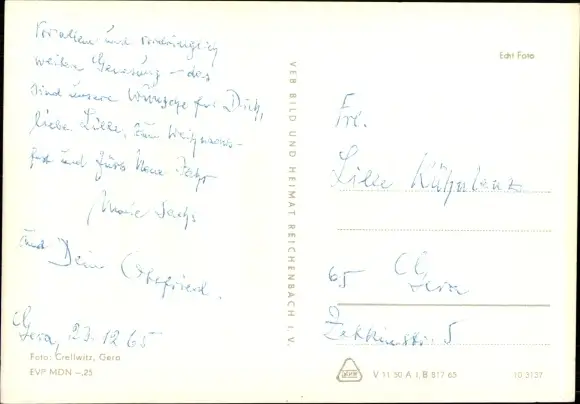 Vor allem und vordringlich
weiter Genesung – das
sind unsere Wünsche für Dich,
liebe Lille, zum Weihnachts-
fest und fürs Neue Jahr
Sachs
und Dein Ortsfried.
Gera, 23.12.65
Foto: Crellwitz, Gera
EVP MDN –.25
VEB BILD UND HEIMAT REICHENBACH I. V.
Echt Foto
Frl.
Lille Kühnlenz
65 Gera
Zetkinstr. 5
V 11 50 A 1, B 817 65
10 3137